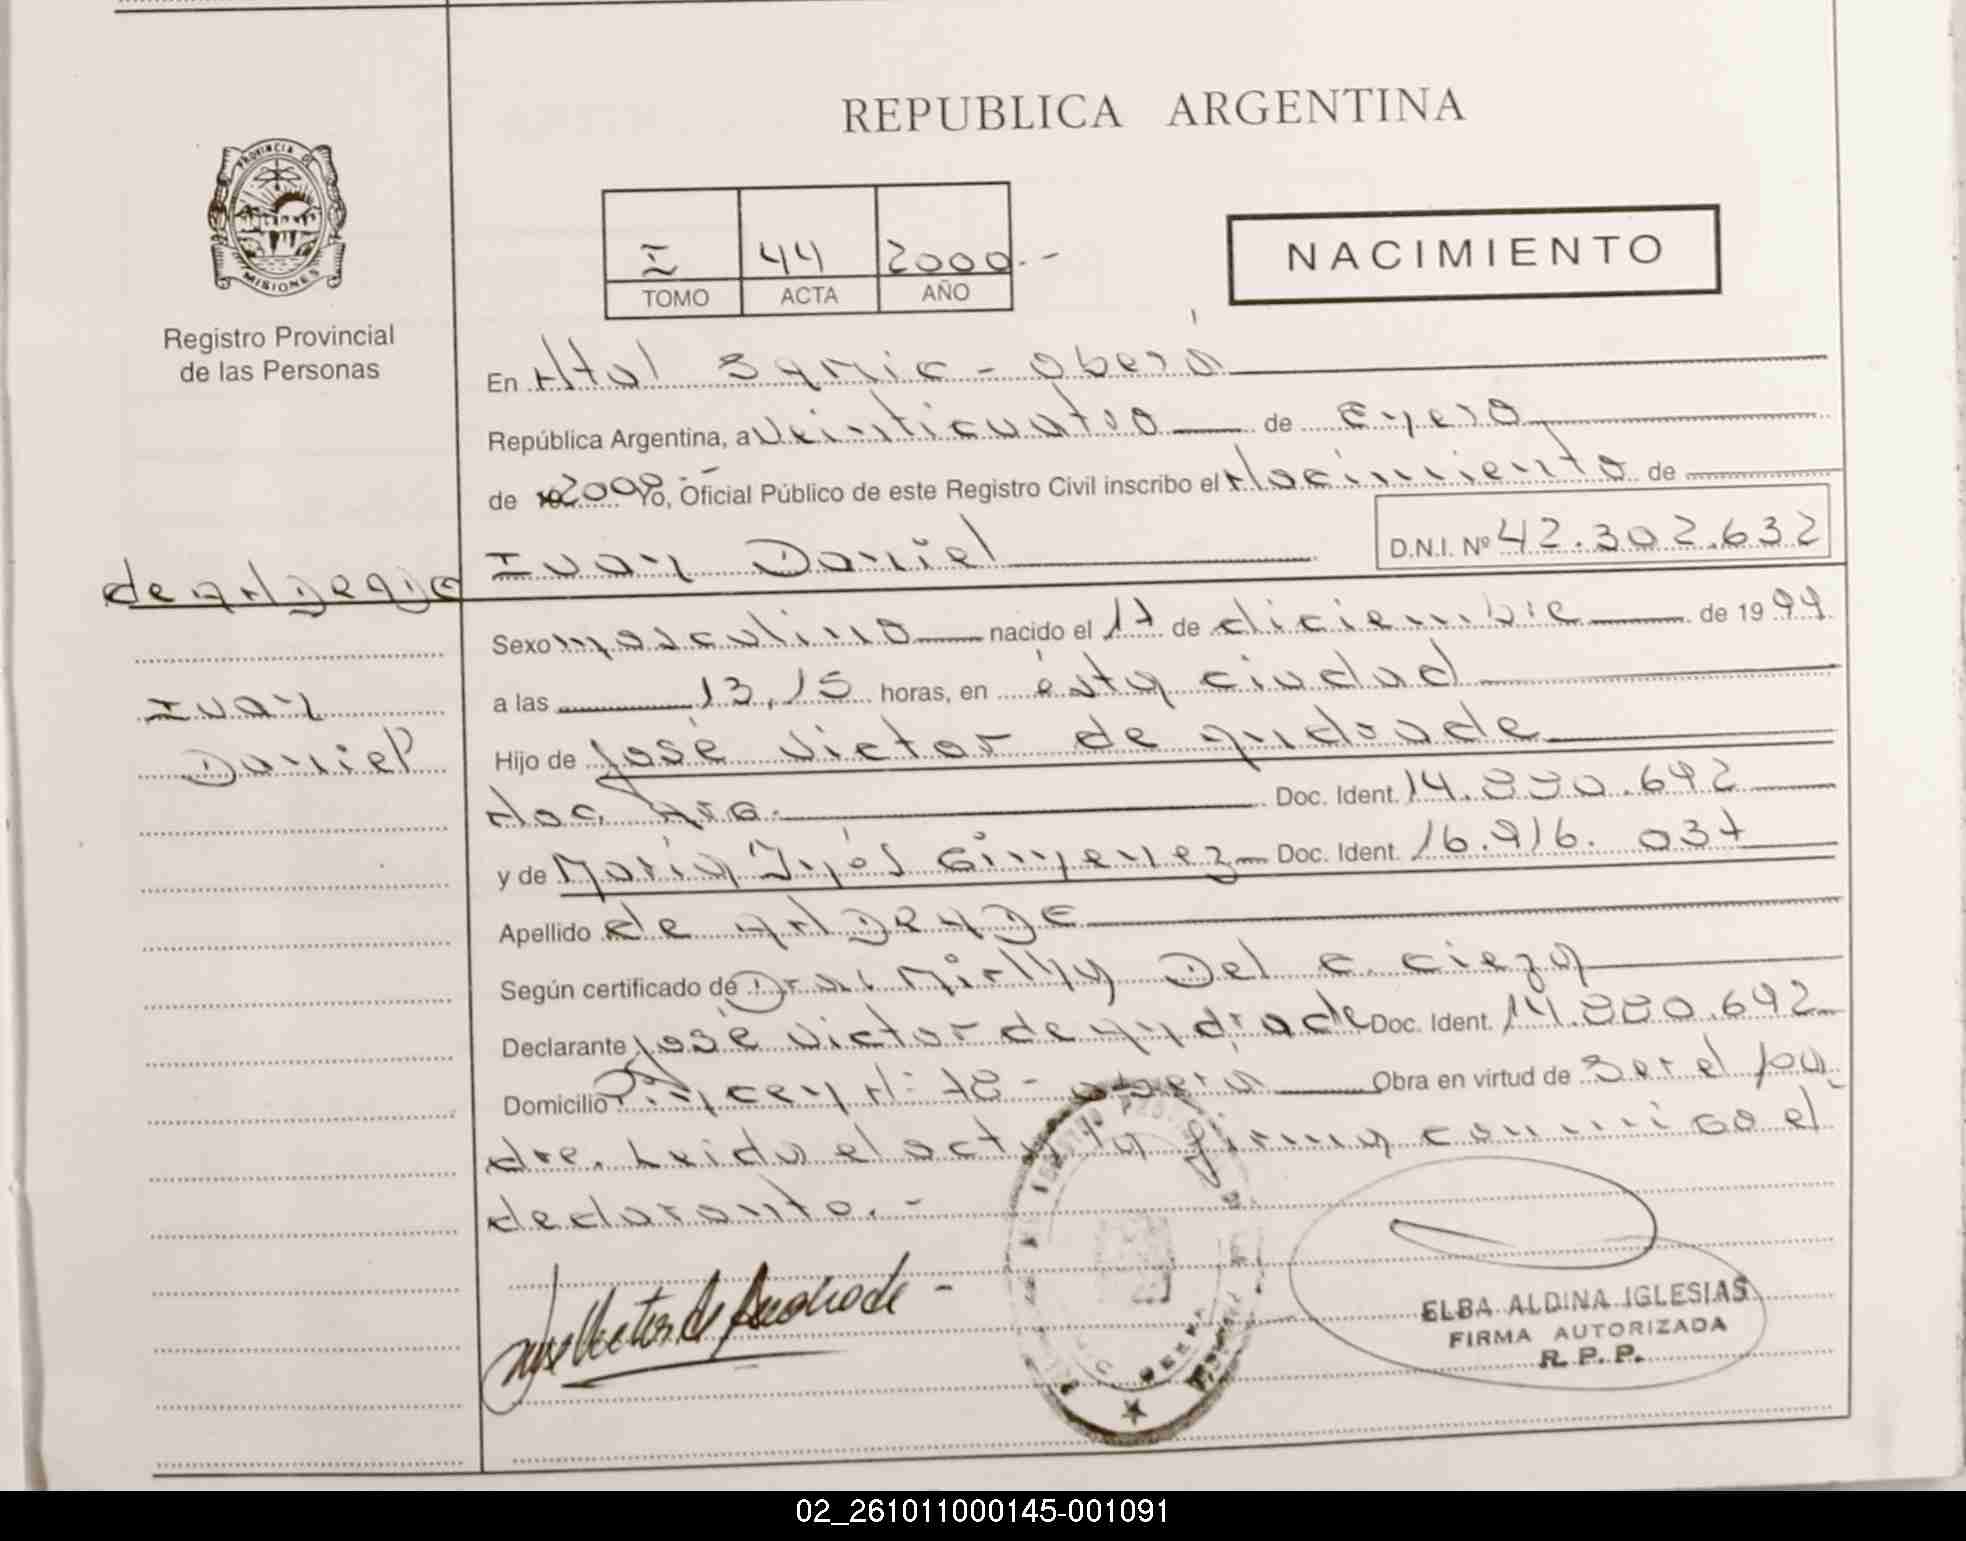 REPUBLICA ARGENTINA
PROVINCIA DE MISIONES
Registro Provincial
de las Personas
I 44 2000.-
TOMO ACTA AÑO
NACIMIENTO
En Htal Samic - Oberá
República Argentina, a veinticuatro de Enero
de 2000 Yo, Oficial Público de este Registro Civil inscribo el Nacimiento de
Ivan Daniel D.N.I. Nº 42.302.632
Sexo masculino nacido el 17 de diciembre de 19 99
a las 13,15 horas, en ésta ciudad
Hijo de José Victor de Andrade
Nac. Arg. Doc. Ident. 14.880.692
y de María Inés Gimenez Doc. Ident. 16.916.037
Apellido de ANDRADE
Según certificado de Dra. Del C. Cieza
Declarante José Victor de Andrade Doc. Ident. 14.880.692
Domicilio Nº 78 - Oberá Obra en virtud de Ser el pa-
dre. Leida el acta la firma conmigo el
declarante.-
de ANDRADE
Ivan
Daniel
Jose Victor de Andrade -
ELBA ALDINA IGLESIAS
FIRMA AUTORIZADA
R. P. P.
02_261011000145-001091